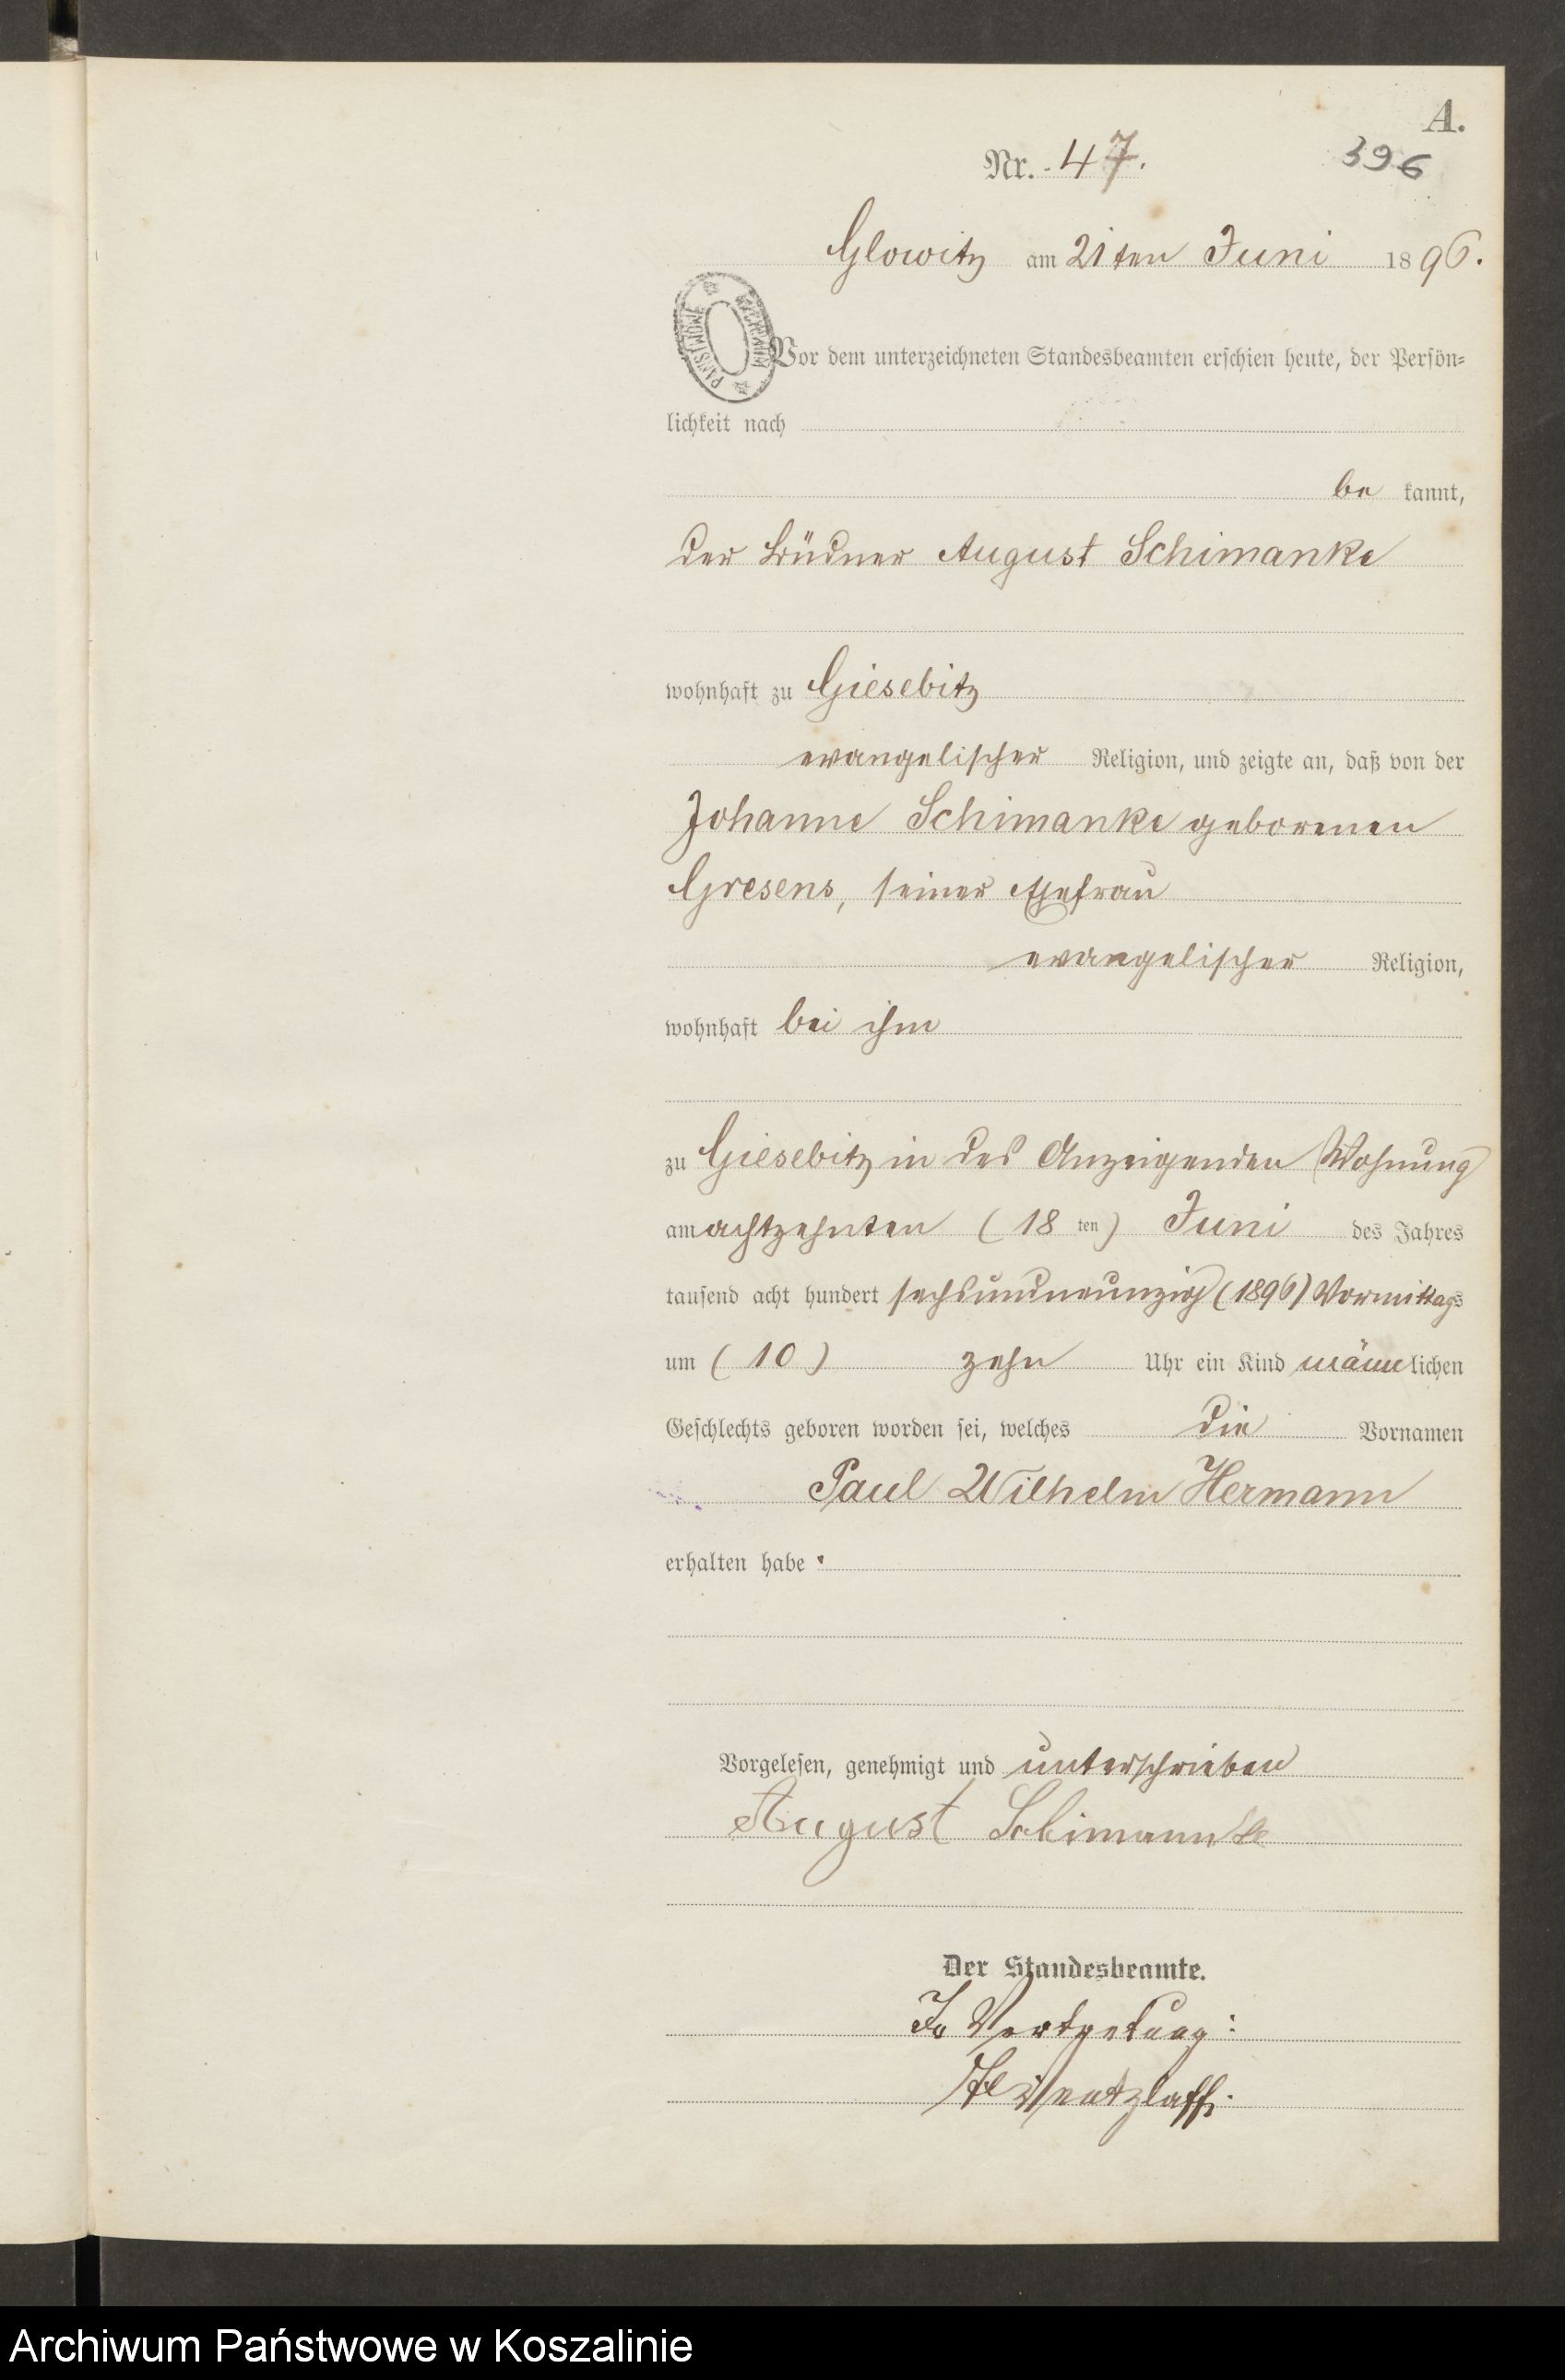 A.
Nr. 47.
396
Glowitz am 21ten Juni 1896.
Vor dem unterzeichneten Standesbeamten erschien heute, der Persön-
lichkeit nach
be kannt,
der Büdner August Schimanke
wohnhaft zu Giesebitz
evangelischer Religion, und zeigte an, daß von der
Johanne Schimanke geborenen
Gresens, seiner Ehefrau
evangelischer Religion,
wohnhaft bei ihm
zu Giesebitz in des Anzeigenden Wohnung
am achtzehnten (18 ten) Juni des Jahres
tausend acht hundert sechsundneunzig (1896) Vormittags
um (10) zehn Uhr ein Kind männlichen
Geschlechts geboren worden sei, welches die Vornamen
Paul Wilhelm Hermann
erhalten habe.
Vorgelesen, genehmigt und unterschrieben
August Schimannke
Der Standesbeamte.
In Vertretung:
Wentzlaff.
Archiwum Państwowe w Koszalinie